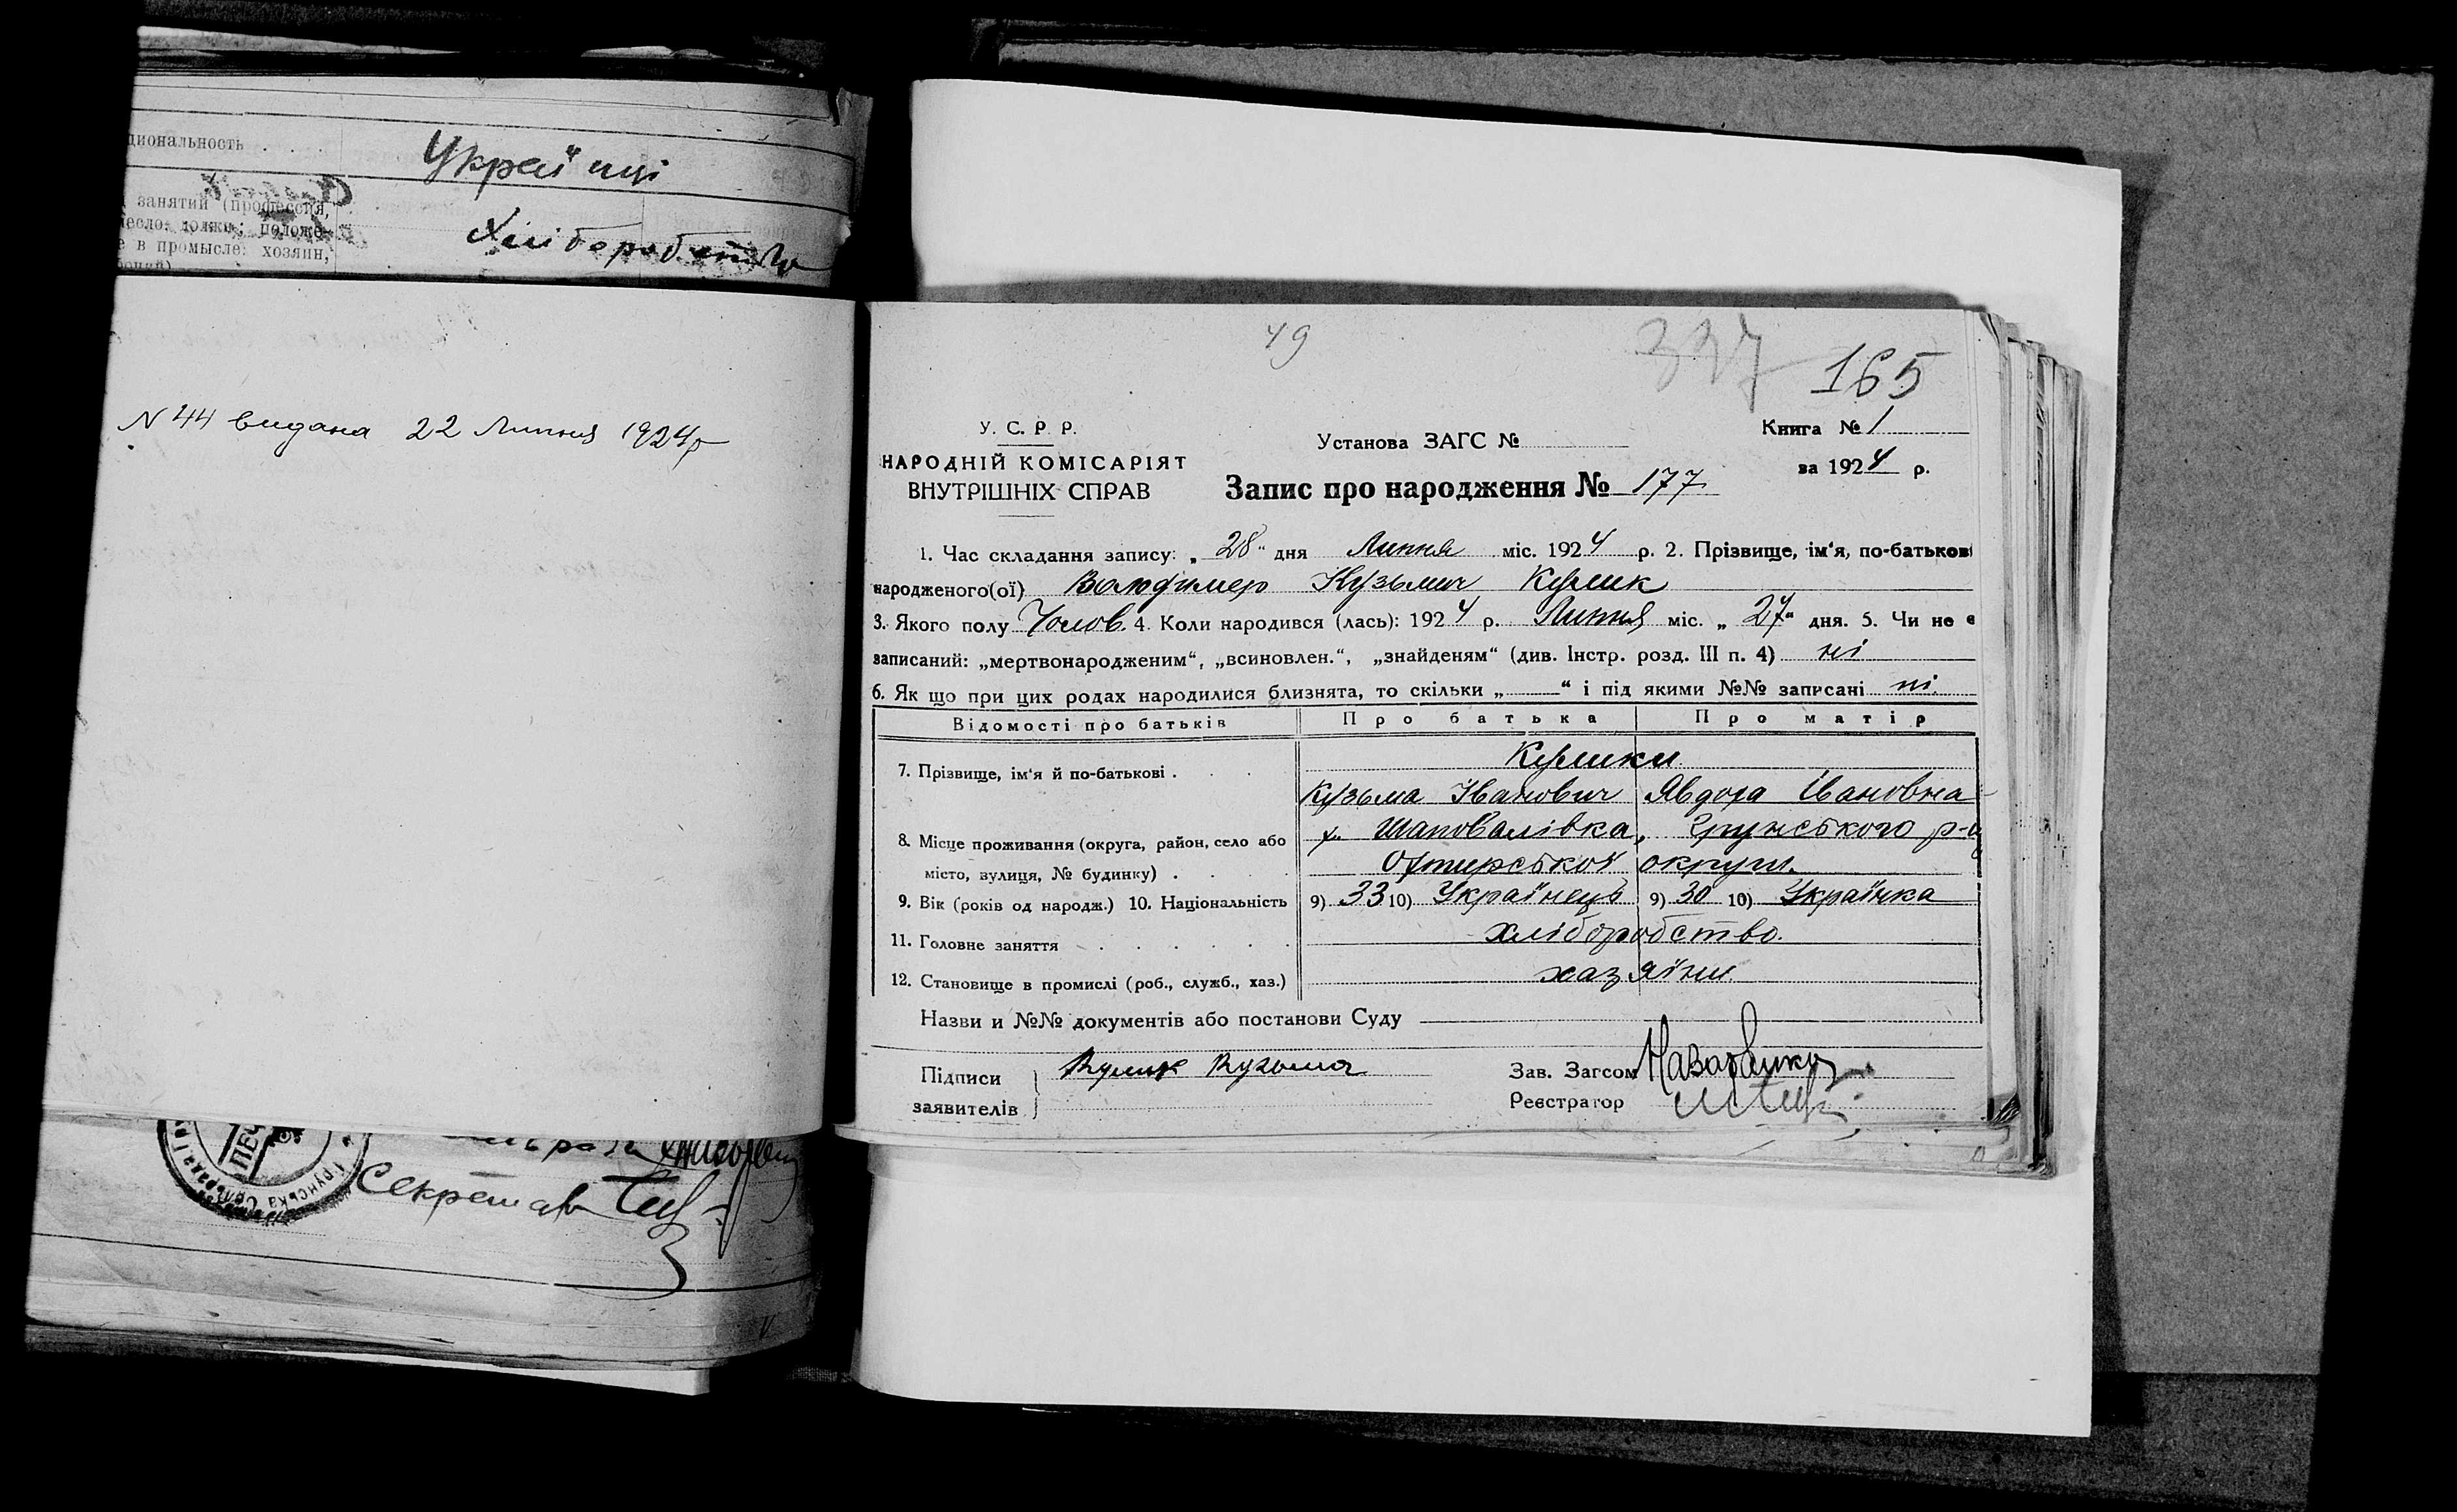 циональность . . .
Украї нці
занятий (профессия,
есло: должн; положе-
е в промысле: хозяин,
Хліборобство
N 44 видана 22 Липня 1924р
Грунська Сільрада
Секретар
49
337
165
У. С. Р Р.
НАРОДНІЙ КОМІСАРІЯТ
ВНУТРІШНІХ СПРАВ
Установа ЗАГС №
Книга № 1
за 1924 р.
Запис про народження № 177
1. Час складання запису: „ 28 “ дня Липня міс. 1924 р. 2. Прізвище, ім‘я, по-батькові
народженого(ої) Володимер Кузьмич Кулик
3. Якого полу Чолов. 4. Коли народився (лась): 1924 р. Липня міс. „ 27 “ дня. 5. Чи не є
записаний: „мертвонародженим“, „всиновлен.“, „знайденям“ (див. Інстр. розд. III п. 4) ні
6. Як що при цих родах народилися близнята, то скільки „ “ і під якими №№ записані ні.
Відомості про батьків Про батька Про матір
Кулики
7. Прізвище, ім‘я й по-батькові .
Кузьма Іванович Явдоха Івановна
х. Шаповалівка, Грунського р-у
8. Місце проживання (округа, район, село або
місто, вулиця, № будинку) .
Охтирської округи.
9. Вік (років од народж.) 10. Національність 9) 33 10) Українець 9) 30 10) Українка
11. Головне заняття хліборобство.
12. Становище в промислі (роб., служб., хаз.) хазяїни.
Назви и №№ документів або постанови Суду
Підписи
заявителів
Кулик Кузьма
Зав. Загсом
Реєстратор